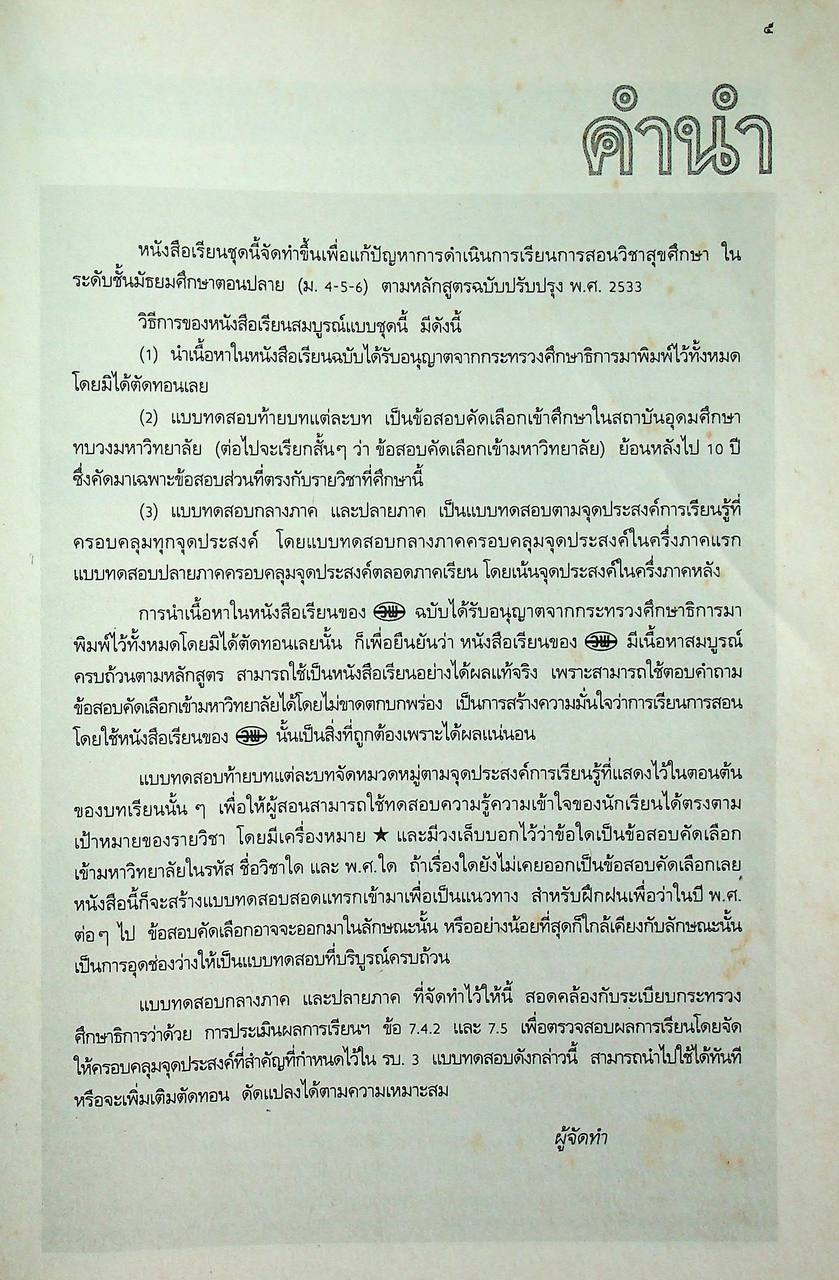 ๕
คำนำ
หนังสือเรียนชุดนี้จัดทำขึ้นเพื่อแก้ปัญหาการดำเนินการเรียนการสอนวิชาสุขศึกษา ใน
ระดับชั้นมัธยมศึกษาตอนปลาย (ม. 4-5-6) ตามหลักสูตรฉบับปรับปรุง พ.ศ. 2533
วิธีการของหนังสือเรียนสมบูรณ์แบบชุดนี้ มีดังนี้
(1) นำเนื้อหาในหนังสือเรียนฉบับได้รับอนุญาตจากกระทรวงศึกษาธิการมาพิมพ์ไว้ทั้งหมด
โดยมิได้ตัดทอนเลย
(2) แบบทดสอบท้ายบทแต่ละบท เป็นข้อสอบคัดเลือกเข้าศึกษาในสถาบันอุดมศึกษา
ทบวงมหาวิทยาลัย (ต่อไปจะเรียกสั้นๆ ว่า ข้อสอบคัดเลือกเข้ามหาวิทยาลัย) ย้อนหลังไป 10 ปี
ซึ่งคัดมาเฉพาะข้อสอบส่วนที่ตรงกับรายวิชาที่ศึกษานี้
(3) แบบทดสอบกลางภาค และปลายภาค เป็นแบบทดสอบตามจุดประสงค์การเรียนรู้ที่
ครอบคลุมทุกจุดประสงค์ โดยแบบทดสอบกลางภาคครอบคลุมจุดประสงค์ในครึ่งภาคแรก
แบบทดสอบปลายภาคครอบคลุมจุดประสงค์ตลอดภาคเรียน โดยเน้นจุดประสงค์ในครึ่งภาคหลัง
การนำเนื้อหาในหนังสือเรียนของ ฉบับได้รับอนุญาตจากกระทรวงศึกษาธิการมา
พิมพ์ไว้ทั้งหมดโดยมิได้ตัดทอนเลยนั้น ก็เพื่อยืนยันว่า หนังสือเรียนของ มีเนื้อหาสมบูรณ์
ครบถ้วนตามหลักสูตร สามารถใช้เป็นหนังสือเรียนอย่างได้ผลแท้จริง เพราะสามารถใช้ตอบคำถาม
ข้อสอบคัดเลือกเข้ามหาวิทยาลัยได้โดยไม่ขาดตกบกพร่อง เป็นการสร้างความมั่นใจว่าการเรียนการสอน
โดยใช้หนังสือเรียนของ นั้นเป็นสิ่งที่ถูกต้องเพราะได้ผลแน่นอน
แบบทดสอบท้ายบทแต่ละบทจัดหมวดหมู่ตามจุดประสงค์การเรียนรู้ที่แสดงไว้ในตอนต้น
ของบทเรียนนั้น ๆ เพื่อให้ผู้สอนสามารถใช้ทดสอบความรู้ความเข้าใจของนักเรียนได้ตรงตาม
เป้าหมายของรายวิชา โดยมีเครื่องหมาย ★ และมีวงเล็บบอกไว้ว่าข้อใดเป็นข้อสอบคัดเลือก
เข้ามหาวิทยาลัยในรหัส ชื่อวิชาใด และ พ.ศ.ใด ถ้าเรื่องใดยังไม่เคยออกเป็นข้อสอบคัดเลือกเลย
หนังสือนี้ก็จะสร้างแบบทดสอบสอดแทรกเข้ามาเพื่อเป็นแนวทาง สำหรับฝึกฝนเพื่อว่าในปี พ.ศ.
ต่อๆ ไป ข้อสอบคัดเลือกอาจจะออกมาในลักษณะนั้น หรืออย่างน้อยที่สุดก็ใกล้เคียงกับลักษณะนั้น
เป็นการอุดช่องว่างให้เป็นแบบทดสอบที่บริบูรณ์ครบถ้วน
แบบทดสอบกลางภาค และปลายภาค ที่จัดทำไว้ให้นี้ สอดคล้องกับระเบียบกระทรวง
ศึกษาธิการว่าด้วย การประเมินผลการเรียนฯ ข้อ 7.4.2 และ 7.5 เพื่อตรวจสอบผลการเรียนโดยจัด
ให้ครอบคลุมจุดประสงค์ที่สำคัญที่กำหนดไว้ใน รบ. 3 แบบทดสอบดังกล่าวนี้ สามารถนำไปใช้ได้ทันที
หรือจะเพิ่มเติมตัดทอน ดัดแปลงได้ตามความเหมาะสม
ผู้จัดทำ